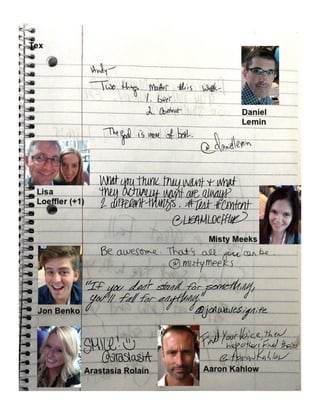 Tex
Andy -
Two things matter this week -
1. beer
2. content
The goal is more of both.
@danlemin
Daniel
Lemin
What you think they want & what
they actually want are always
2 different things. #Test #Content
@LISAMLoeffler
Lisa
Loeffler (+1)
Misty Meeks
Be awesome. That's all you can be.
@mistymeeks
"If you don't stand for something,
you'll fall for anything"
@jonwavesignite
Jon Benko
SMILE!
@arastasiaR
Arastasia Rolain
Find Your Voice, then
help others Find theirs
@AaronKahlow
Aaron Kahlow